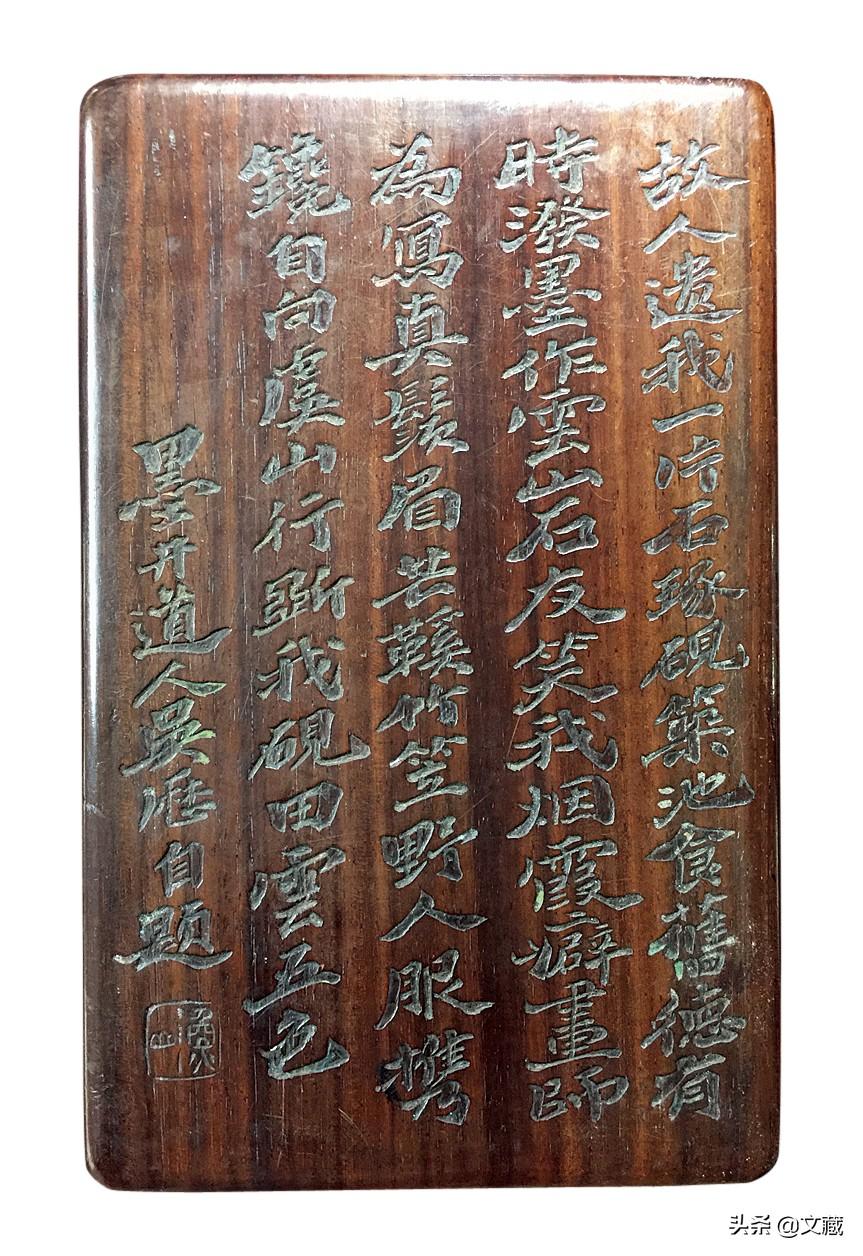 故人遺我一片石琢硯築池食舊德有
時潑墨作雲山石友笑我烟霞癖畫師
為寫真鬚眉芒鞵竹笠野人服攜
鑱自向虞山行斲我硯田雲五色
墨井道人吳歷自題
漁山
头条 @文藏